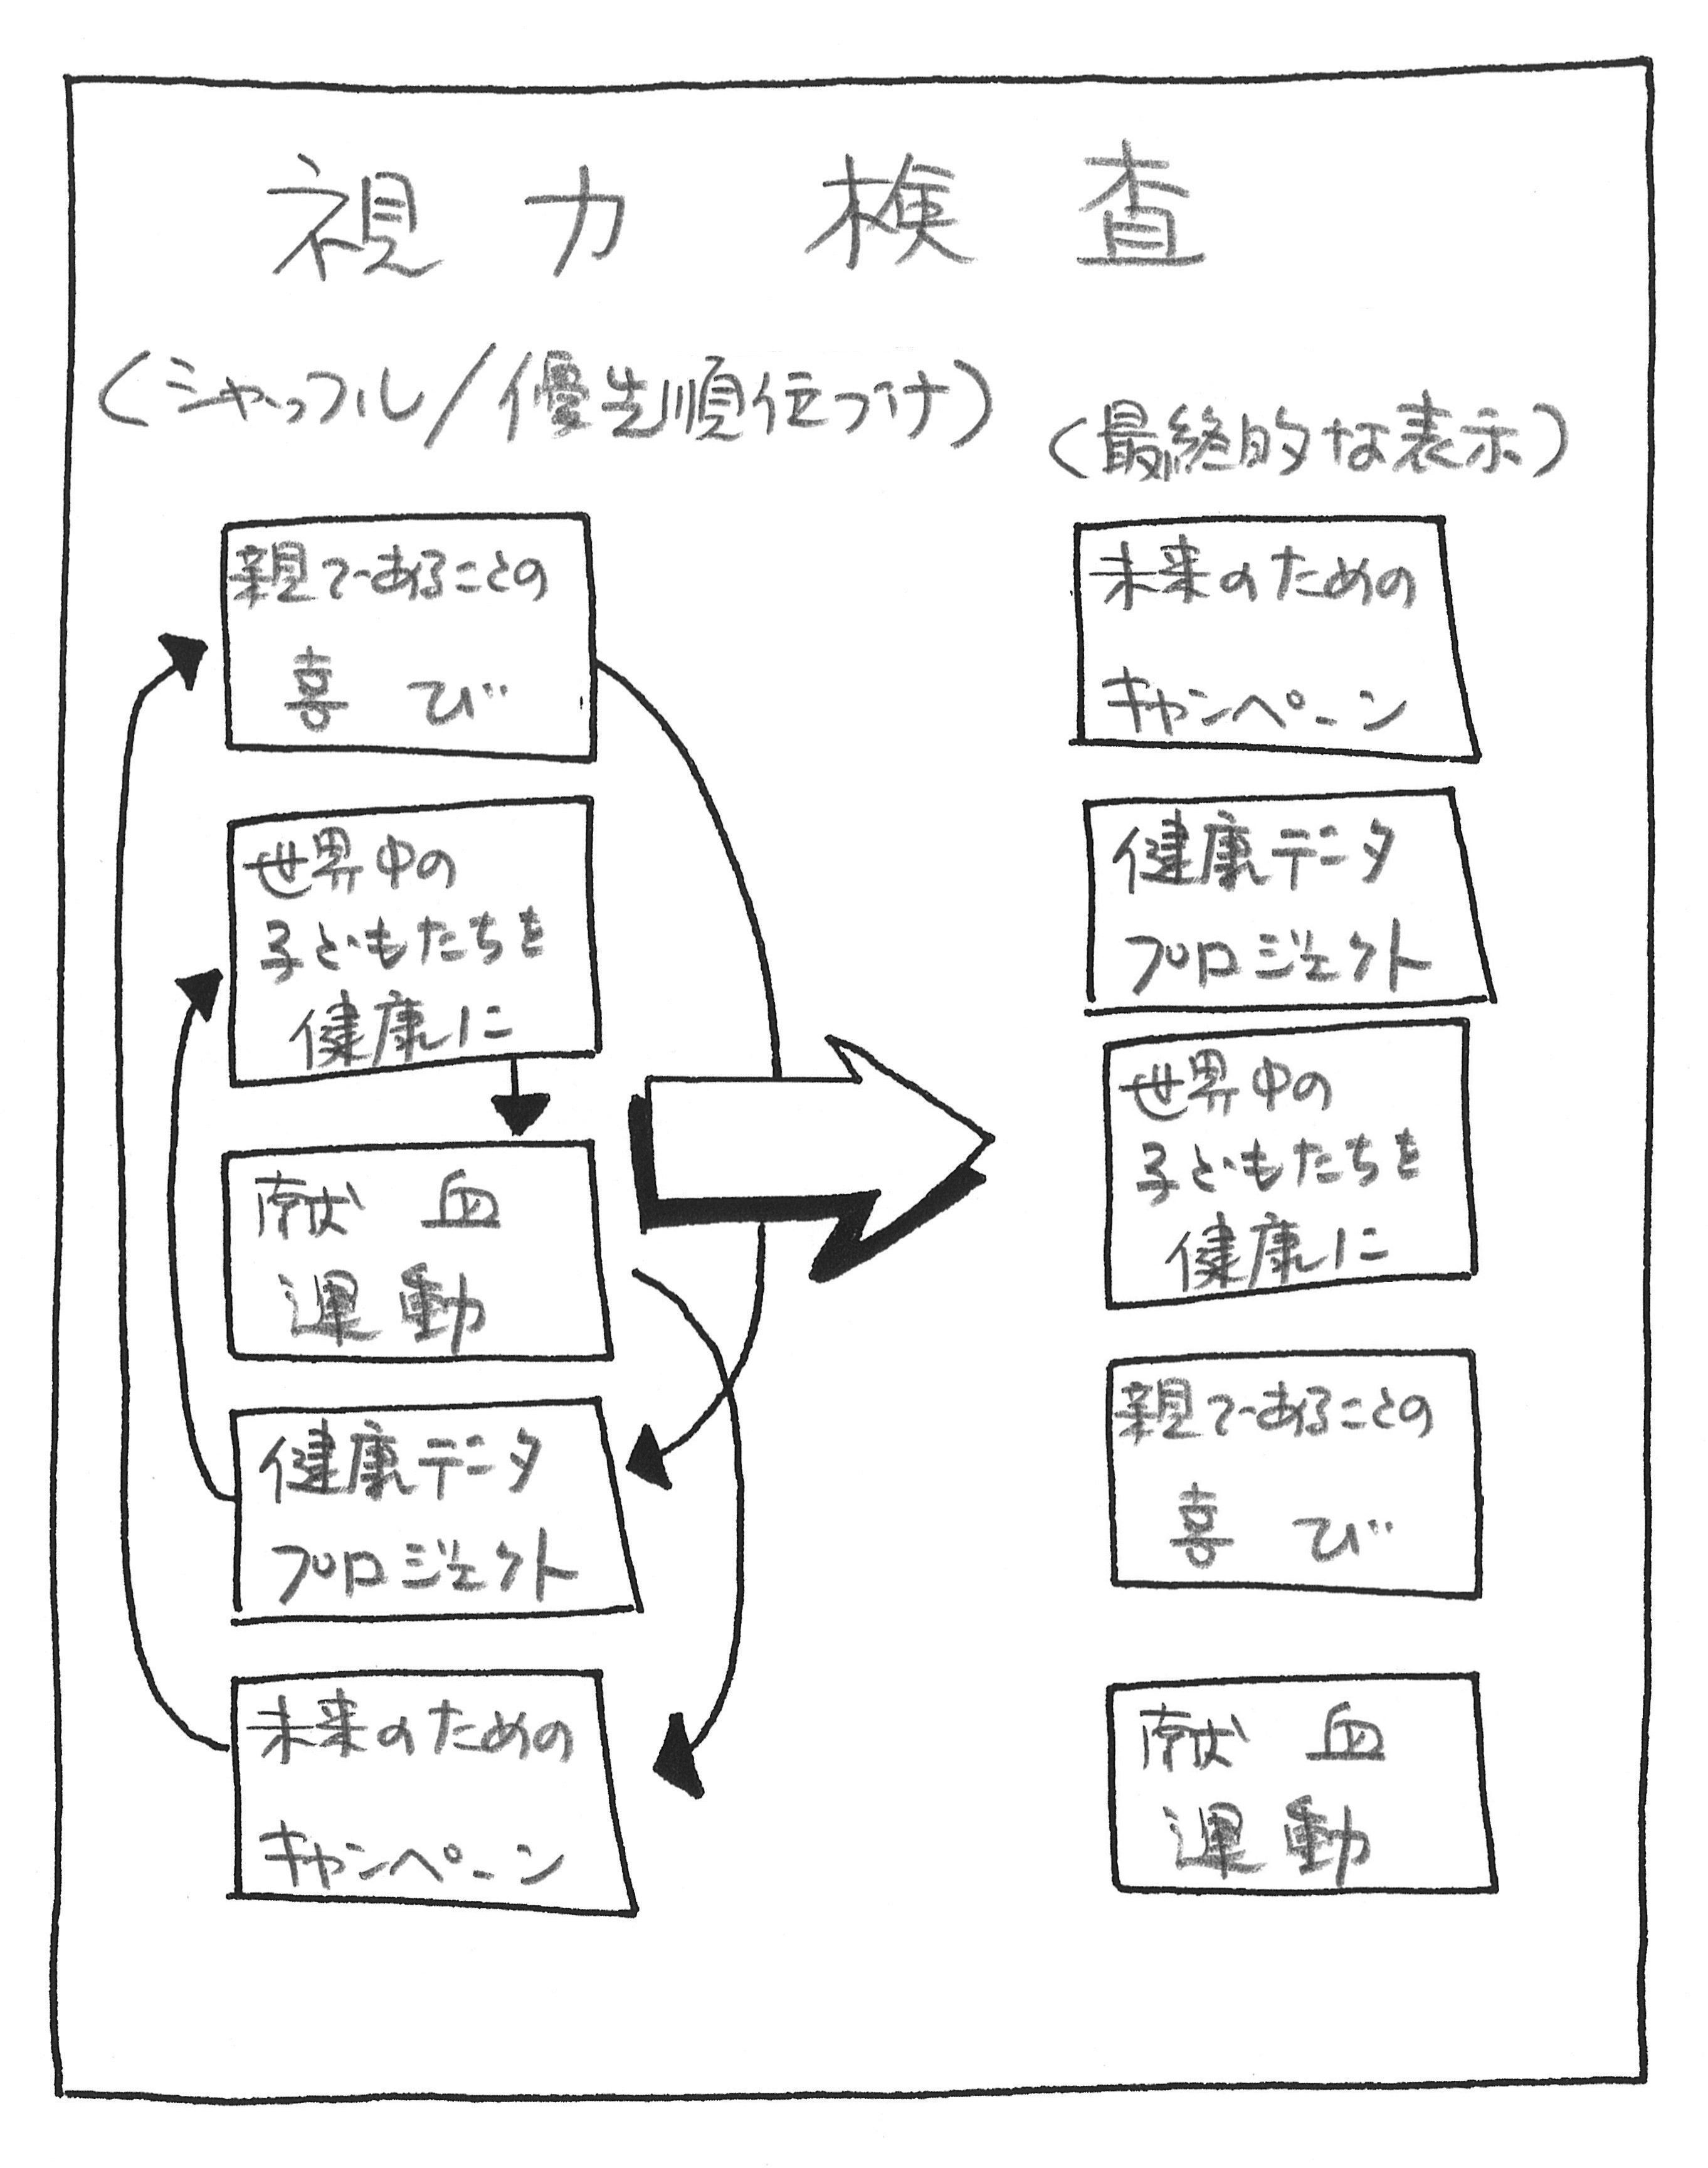 視力検査
(シャッフル/優先順位づけ)
(最終的な表示)
親であることの
喜び
世界中の
子どもたちを
健康に
献血
運動
健康データ
プロジェクト
未来のための
キャンペーン
未来のための
キャンペーン
健康データ
プロジェクト
世界中の
子どもたちを
健康に
親であることの
喜び
献血
運動